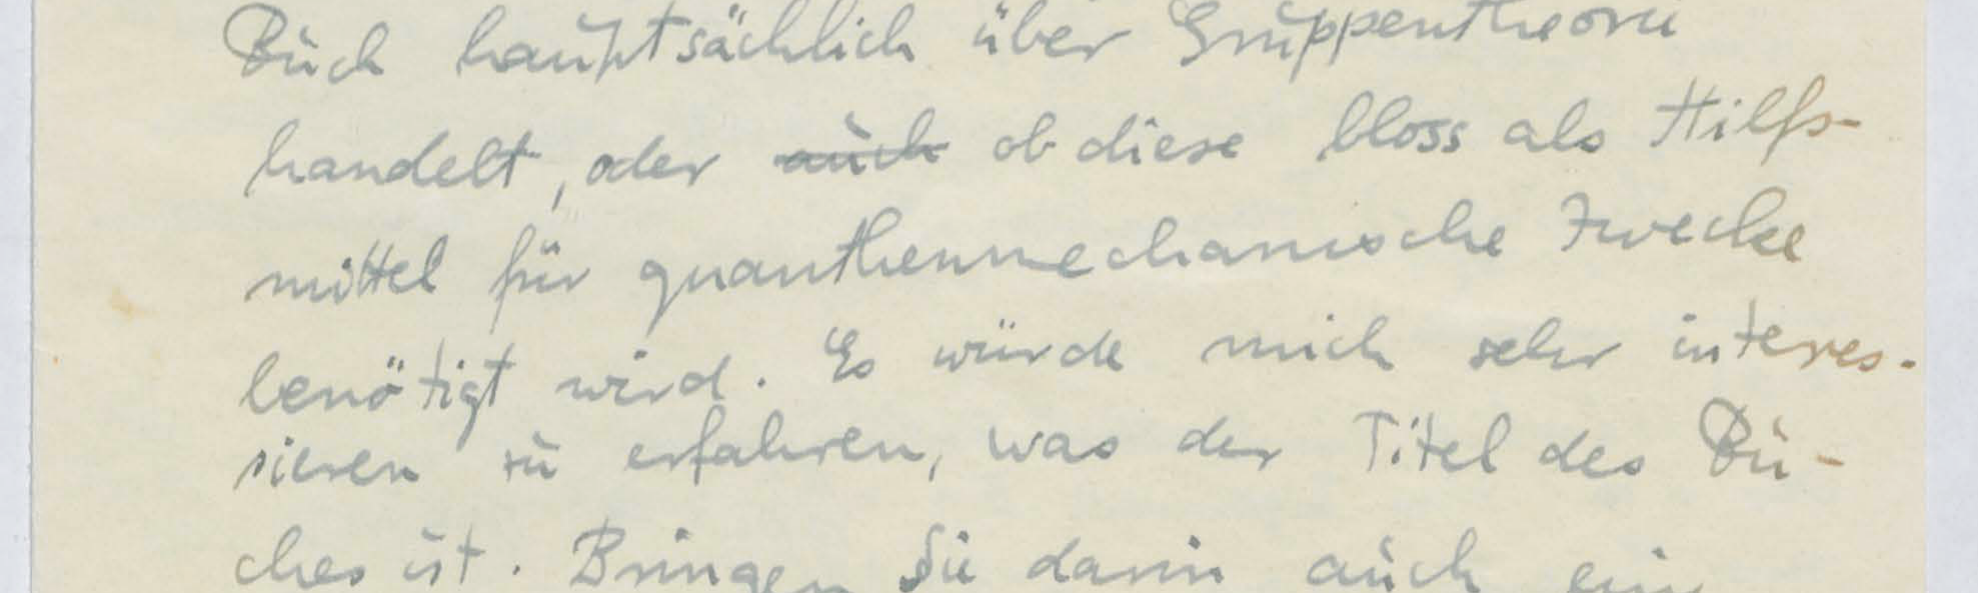 Buch hauptsächlich über Gruppentheorie
handelt, oder auch ob diese bloss als Hilfs-
mittel für quanthenmechanische Zwecke
benötigt wird. Es würde mich sehr interes-
sieren zu erfahren, was der Titel des Bu-
ches ist. Bringen Sie darin auch ein